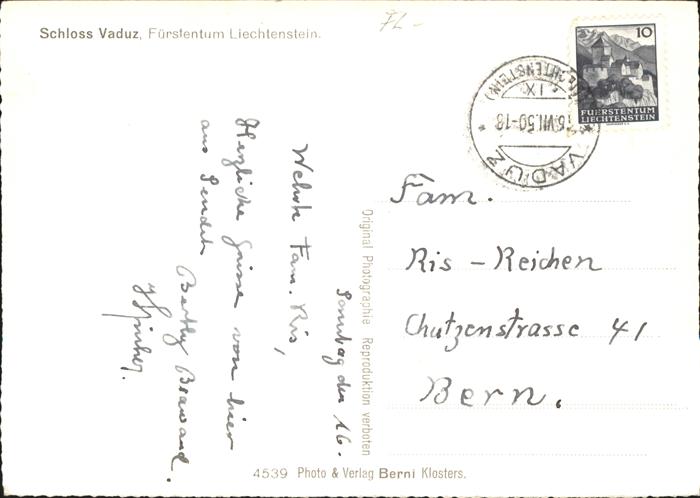 Schloss Vaduz, Fürstentum Liechtenstein.
FL -
10
FUERSTENTUM
LIECHTENSTEIN
VADUZ
(LIECHTENSTEIN)
VII.50-18
IX
Sonntag den 16.
Werte Fam. Ris,
Herzliche Grüsse von hier
aus Sendet
Berthy Brawand.
Original Photographie Reproduktion verboten
Fam.
Ris - Reichen
Chutzenstrasse 41
Bern.
4539 Photo & Verlag Berni Klosters.